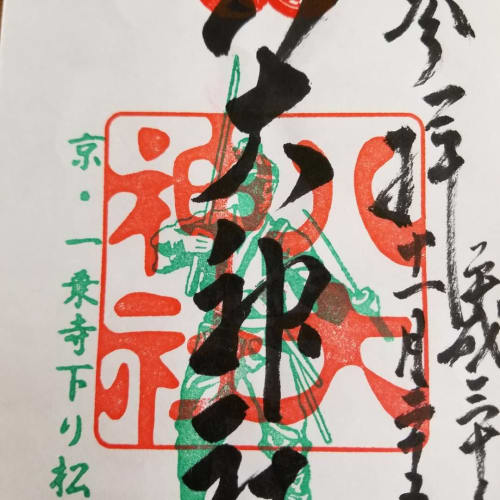 平成三十
参拝
十一月二十
八大神社
八大神社
京・一乗寺下り松